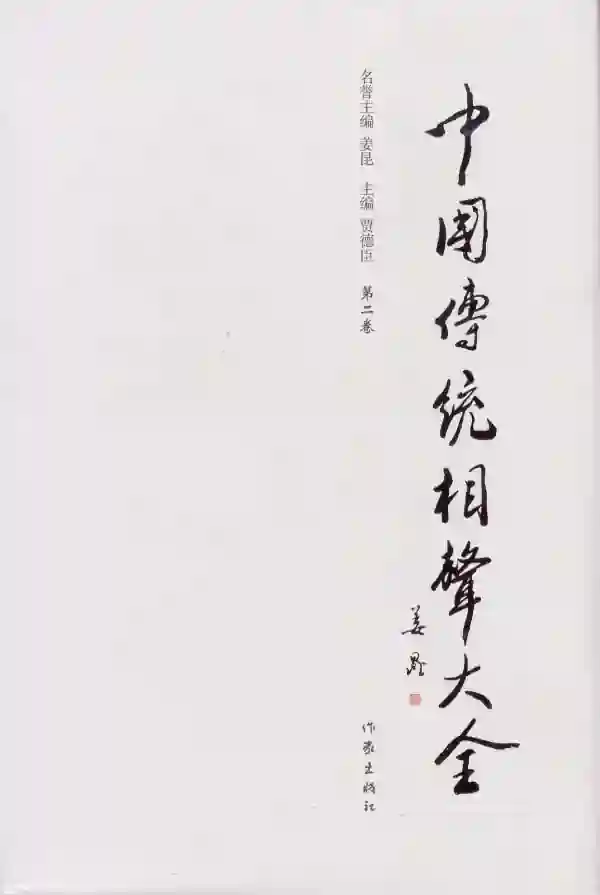 中國傳統相聲大全
姜昆
名誉主编 姜昆 主编 贾德臣 第二卷
作家出版社